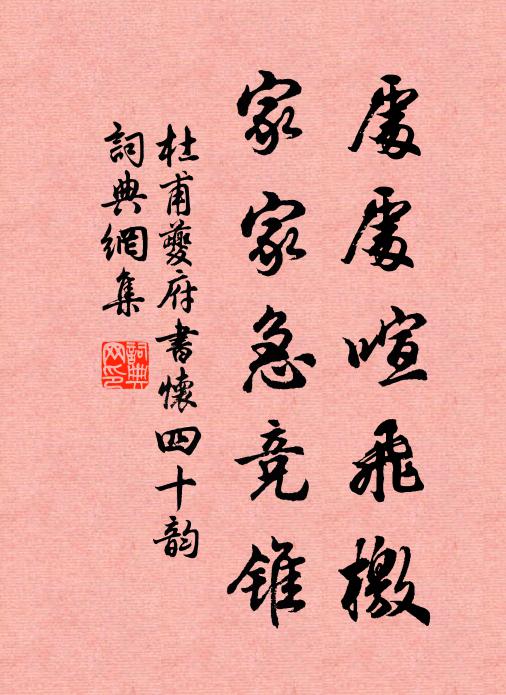 處處喧飛檄
家家急競錐
杜甫夔府書懷四十韵
詞典網集
詞典网印